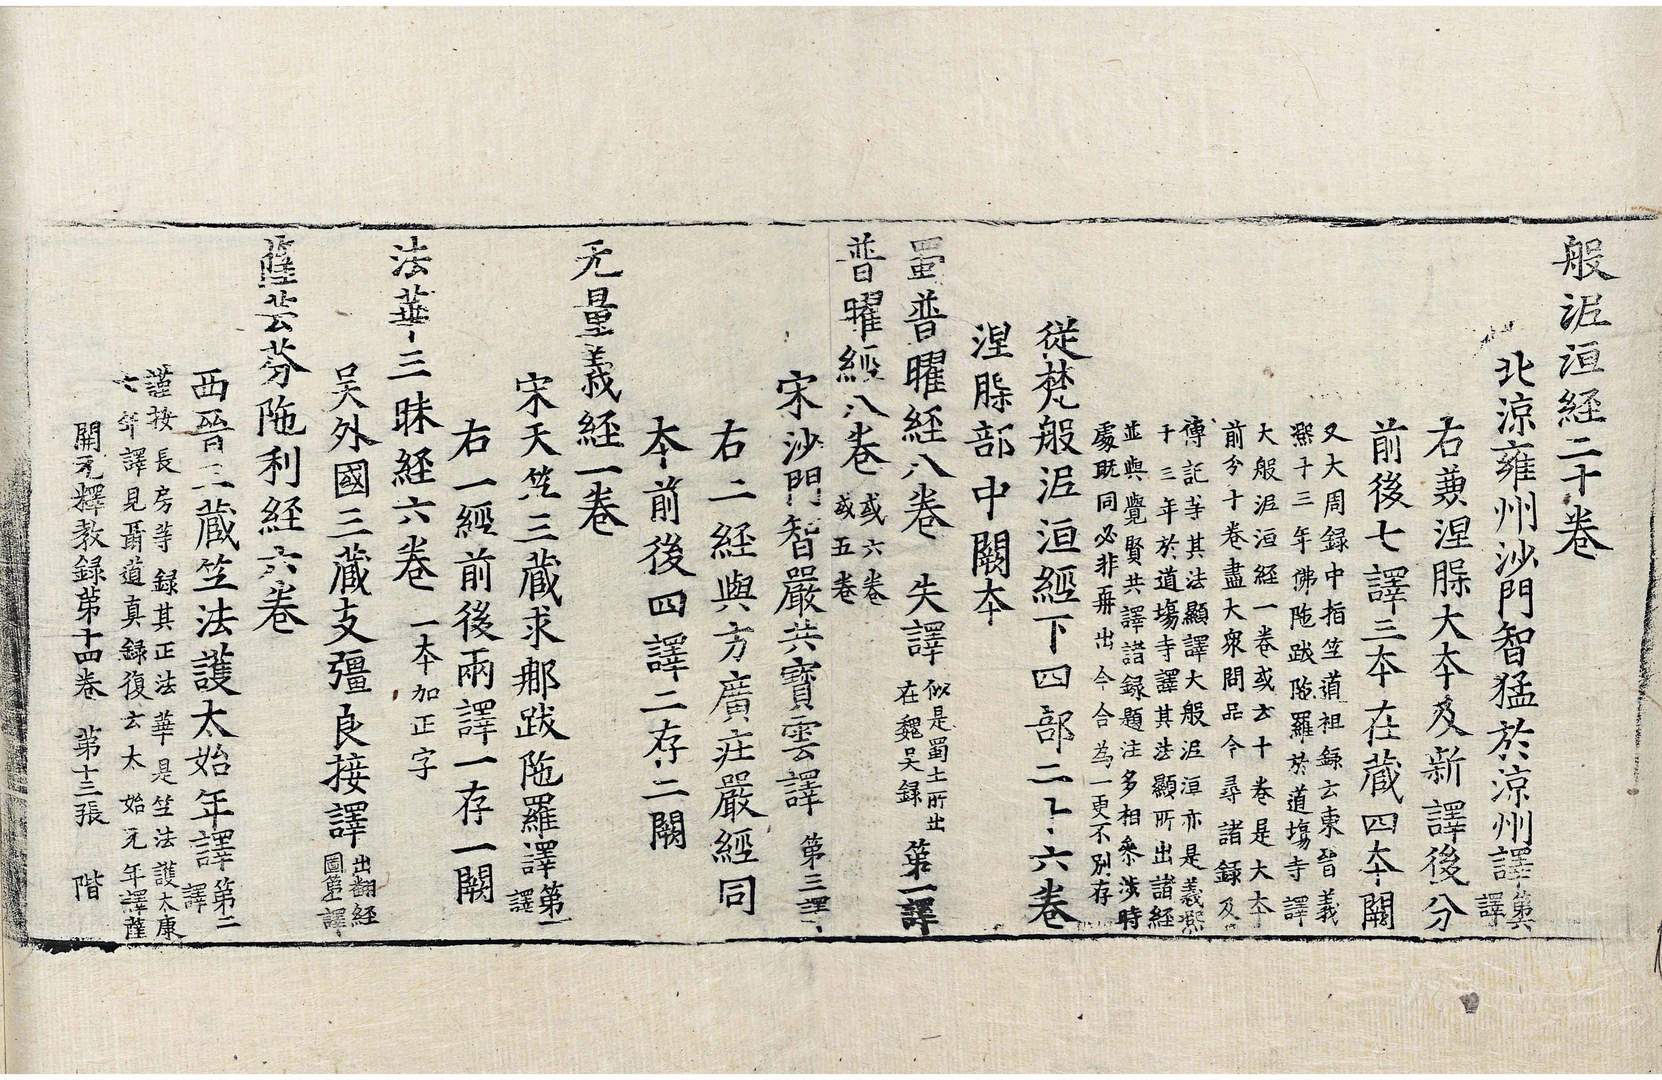 般泥洹経二十卷
北涼雍州沙門智猛於涼州譯第六譯
右兼涅槃大本及新譯後分
前後七譯三本在蔵四本闕
又大周録中指竺道祖録云東晉義
熙十三年佛陁跋陁羅於道塲寺譯
大般泥洹経一卷或云十卷是大本
前分十卷盡大衆問品今尋諸録及
傳記等其法顯譯大般泥洹亦是義熙
十三年於道塲寺譯其法顯所出諸経
並與覺賢共譯諸録題注多相糸涉時
處旣同必非再出今合為一更不別存
從梵般泥洹経下四部二七六卷
涅槃部中闕本
蜀普曜経八卷 失譯 似是蜀土所出在魏吴録 第一譯
普曜經八卷 或六卷或五卷
宋沙門智嚴共寶雲譯 第三譯
右二経與方廣庄嚴經同
本前後四譯二存二闕
无量義経一卷
宋天竺三蔵求那跋陁羅譯第一譯
右一經前後兩譯一存一闕
法華三昧経六卷 一本加正字
吴外國三蔵支彊良接譯 出翻経圖第一譯
薩芸芬陁利経六卷
西晉三蔵竺法護太始年譯第二譯
謹按長房等録其正法華是竺法護太康
七年譯見聶道真録復云太始元年譯薩
開元釋教録第十四卷 第十三張 階